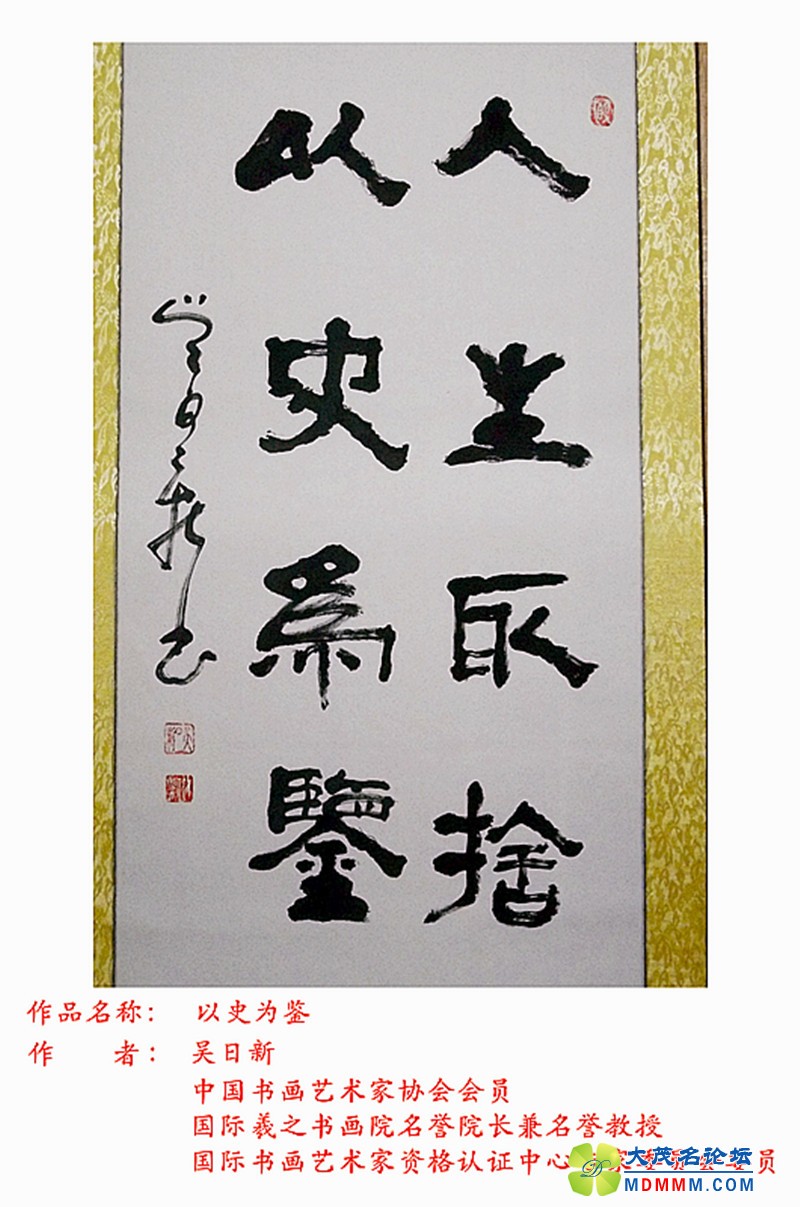 人生取捨
以史為鑒
吴日新书
作品名称： 以史为鉴
作 者： 吴日新
中国书画艺术家协会会员
国际羲之书画院名誉院长兼名誉教授
国际书画艺术家资格认证中心 员
大茂名论坛
MDMMM.COM